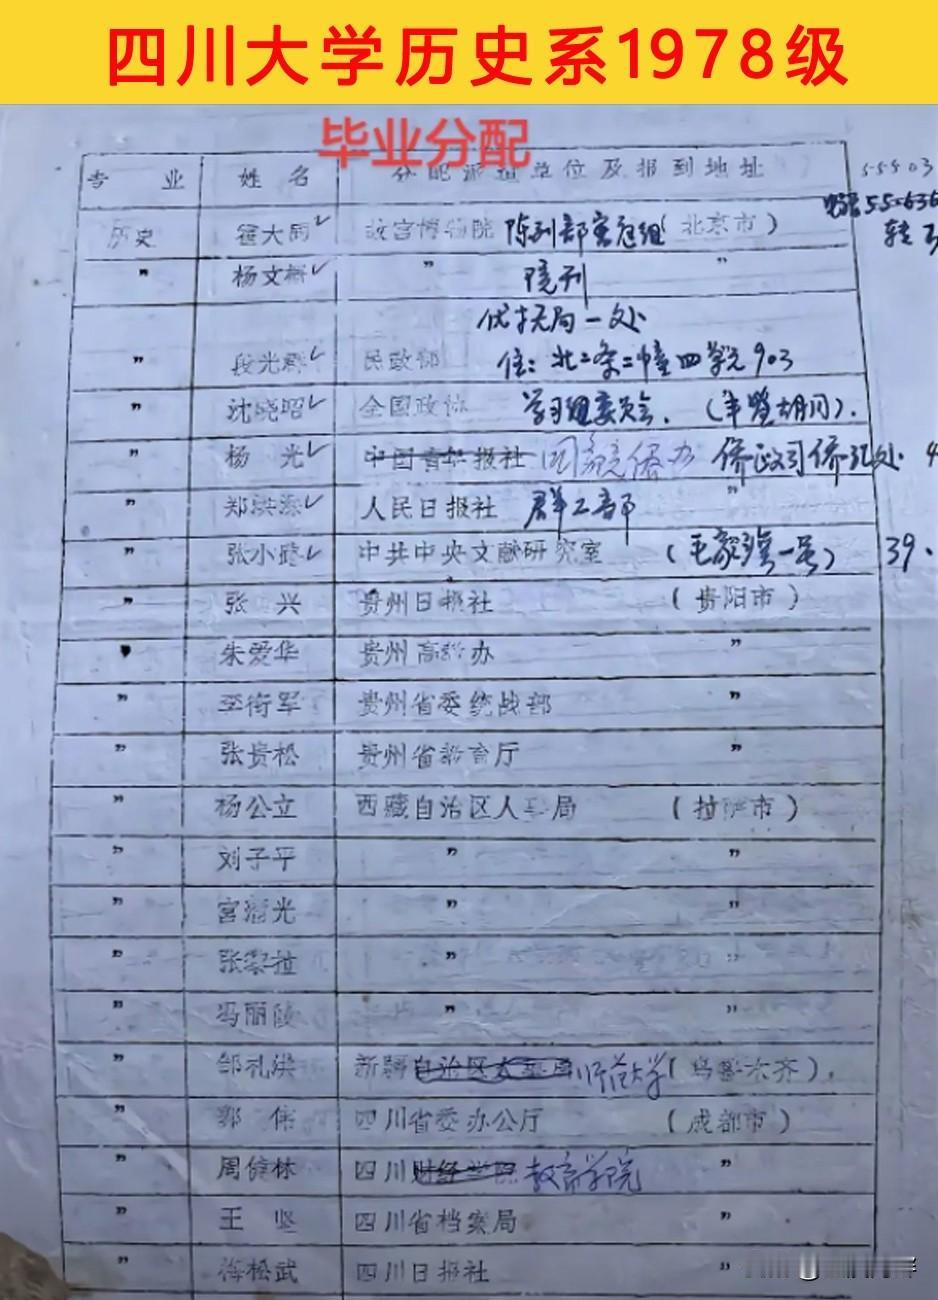 四川大学历史系1978级
毕业分配
专 业 姓 名 分配派遣单位及报到地址 55503
历史 大同✓ 故宫博物院 陈列部 组(北京市) 55636
" 杨文 ✓ " 院刊 "
优抚局一处
" 段光 ✓ 民政部 住:北二条二幢四单元903
" 沈晓昭✓ 全国政协 学习组委员会.( 胡同).
" 杨 光✓ 中国青年报社 国家侨办 侨政司侨汇处. 4
" 郑洪 ✓ 人民日报社 群工部 "
" 张小 ✓ 中共中央文献研究室 (毛家湾一号) 39.
" 张 兴 贵州日报社 (贵阳市)
" 朱爱华 贵州高 办 "
" 李 军 贵州省委统战部 "
" 张贵松 贵州省教育厅 "
" 杨公立 西藏自治区人事局 (拉萨市)
" 刘子平 " "
" 宫 光 " "
" 张 拉 " "
" 冯丽 " "
" 邹礼洪 新疆自治区人事局 师范大学(乌鲁木齐).
" 郭 伟 四川省委办公厅 (成都市)
" 周健林 四川财经学院 教育学院 "
" 王 坚 四川省档案局 "
" 松武 四川日报社 "